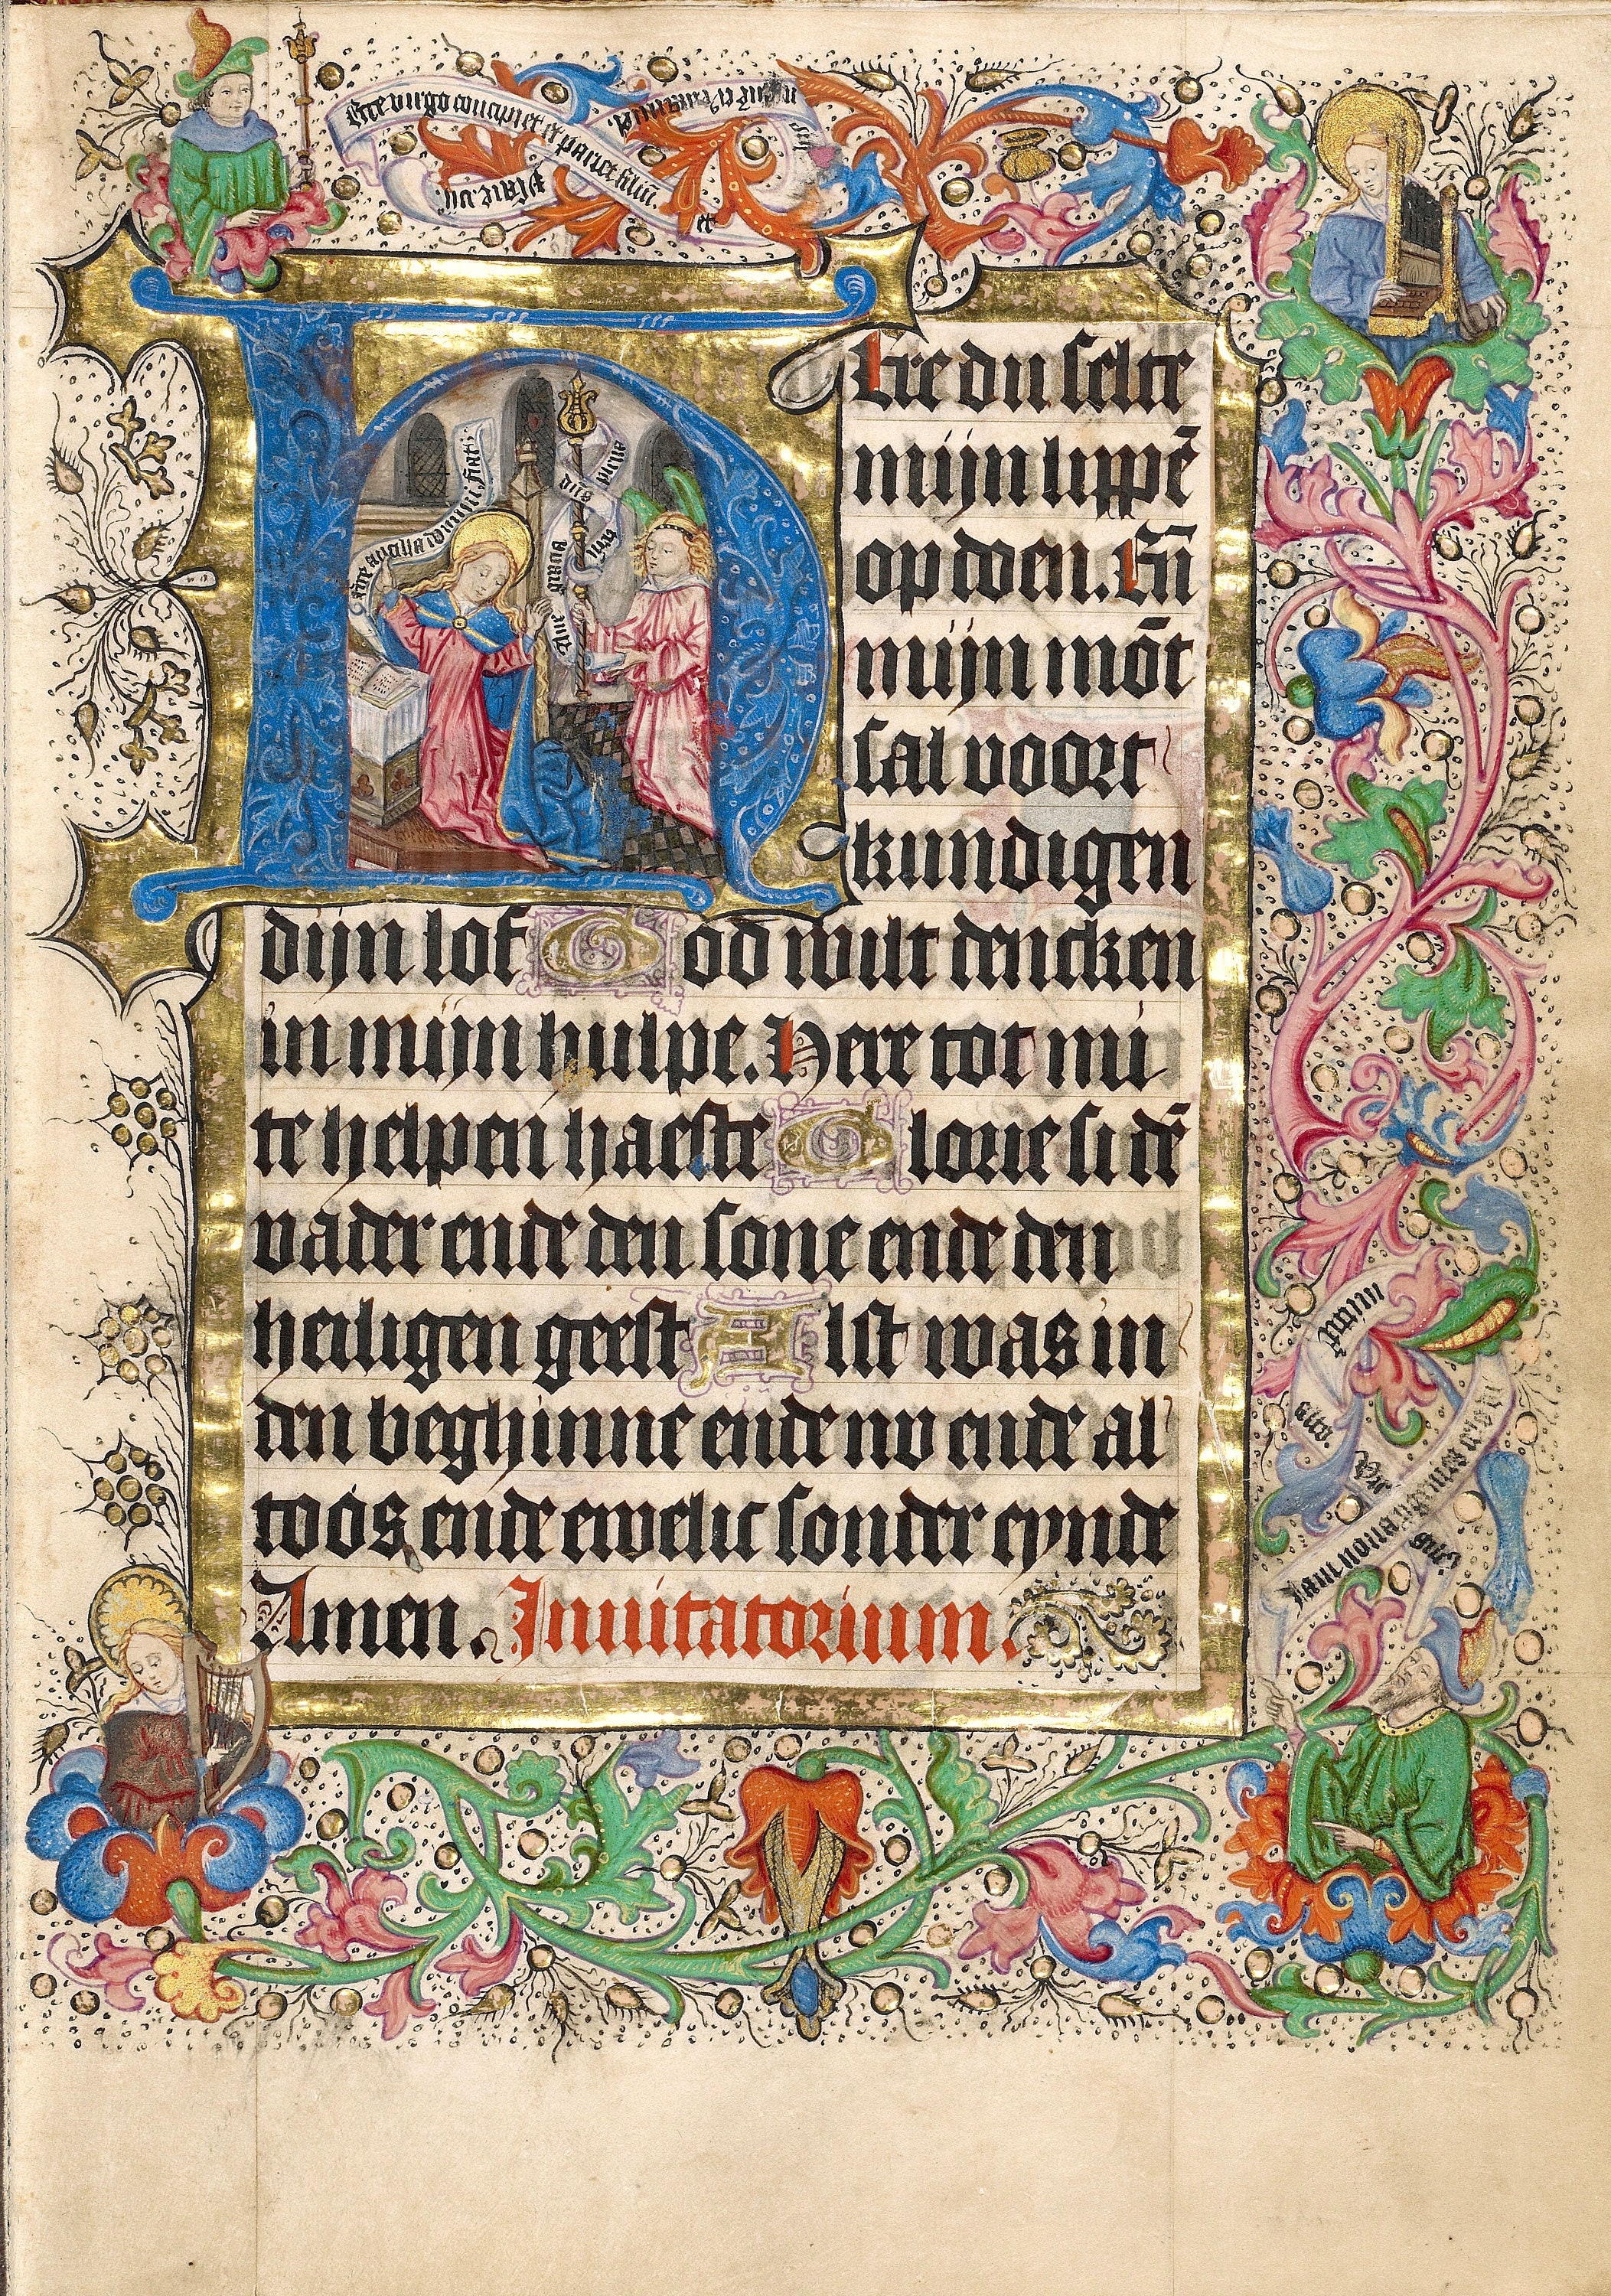 Ecce virgo concipiet et pariet filiu
et
Ysaie. vij.
Ecce ancilla domini fiat
Aue gracia
plena
dns
H
Ere du selte
mijn lippē
op doen. En̄
mijn mōt
sal voort
kundigen
dijn lof God wilt dencken
in mijn hulpe. Here tot mi
te helpen haeste Glorie si dē
vader ende den sone ende den
heiligen geest Alst was in
den beghinne ende nv ende al
toos ende ewelic sonder eynde
Amen. Inuitatorium.